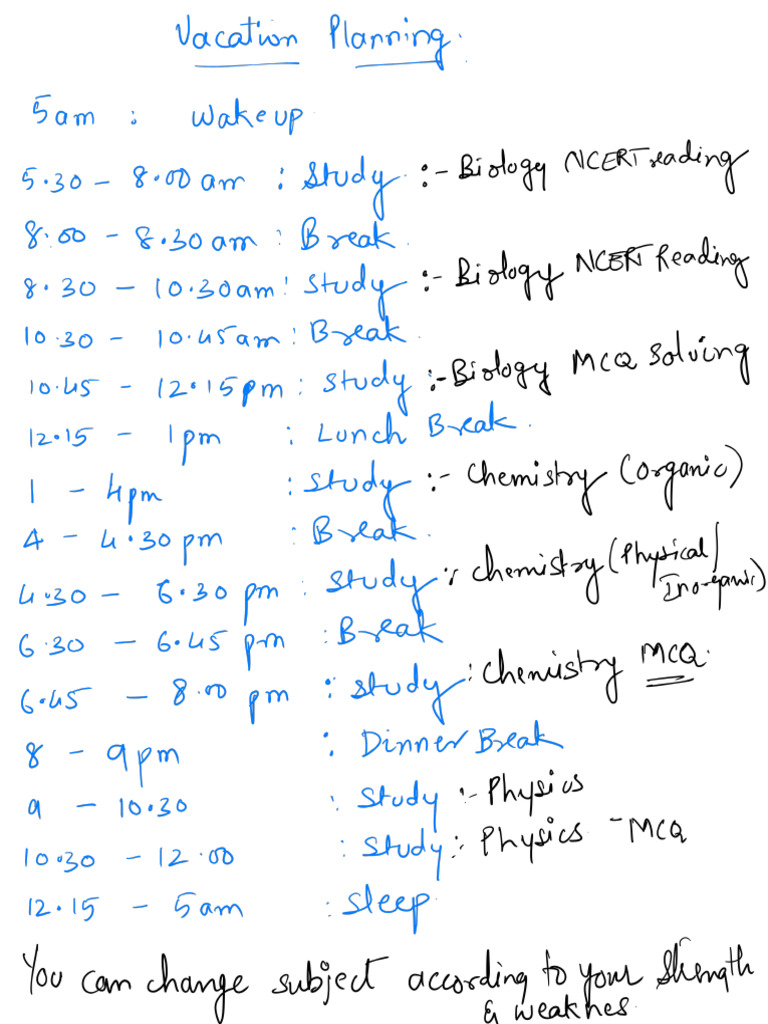 Vacation Planning.
5am : Wakeup
5.30 - 8.00 am : Study :- Biology NCERT reading
8.00 - 8.30am : Break.
8.30 - 10.30am : Study :- Biology NCERT Reading
10.30 - 10.45am : Break.
10.45 - 12.15pm : Study :- Biology MCQ Solving
12.15 - 1pm : Lunch Break.
1 - 4pm : Study :- Chemistry (Organic)
4 - 4.30pm : Break.
4.30 - 6.30 pm : Study : Chemistry (Physical/
Inorganic)
6.30 - 6.45 pm : Break
6.45 - 8.00 pm : Study : Chemistry MCQ.
8 - 9pm : Dinner Break
9 - 10.30 : Study :- Physics
10.30 - 12.00 : Study :- Physics - MCQ
12.15 - 5am : Sleep
You can change subject according to your Strength
& weaknes.